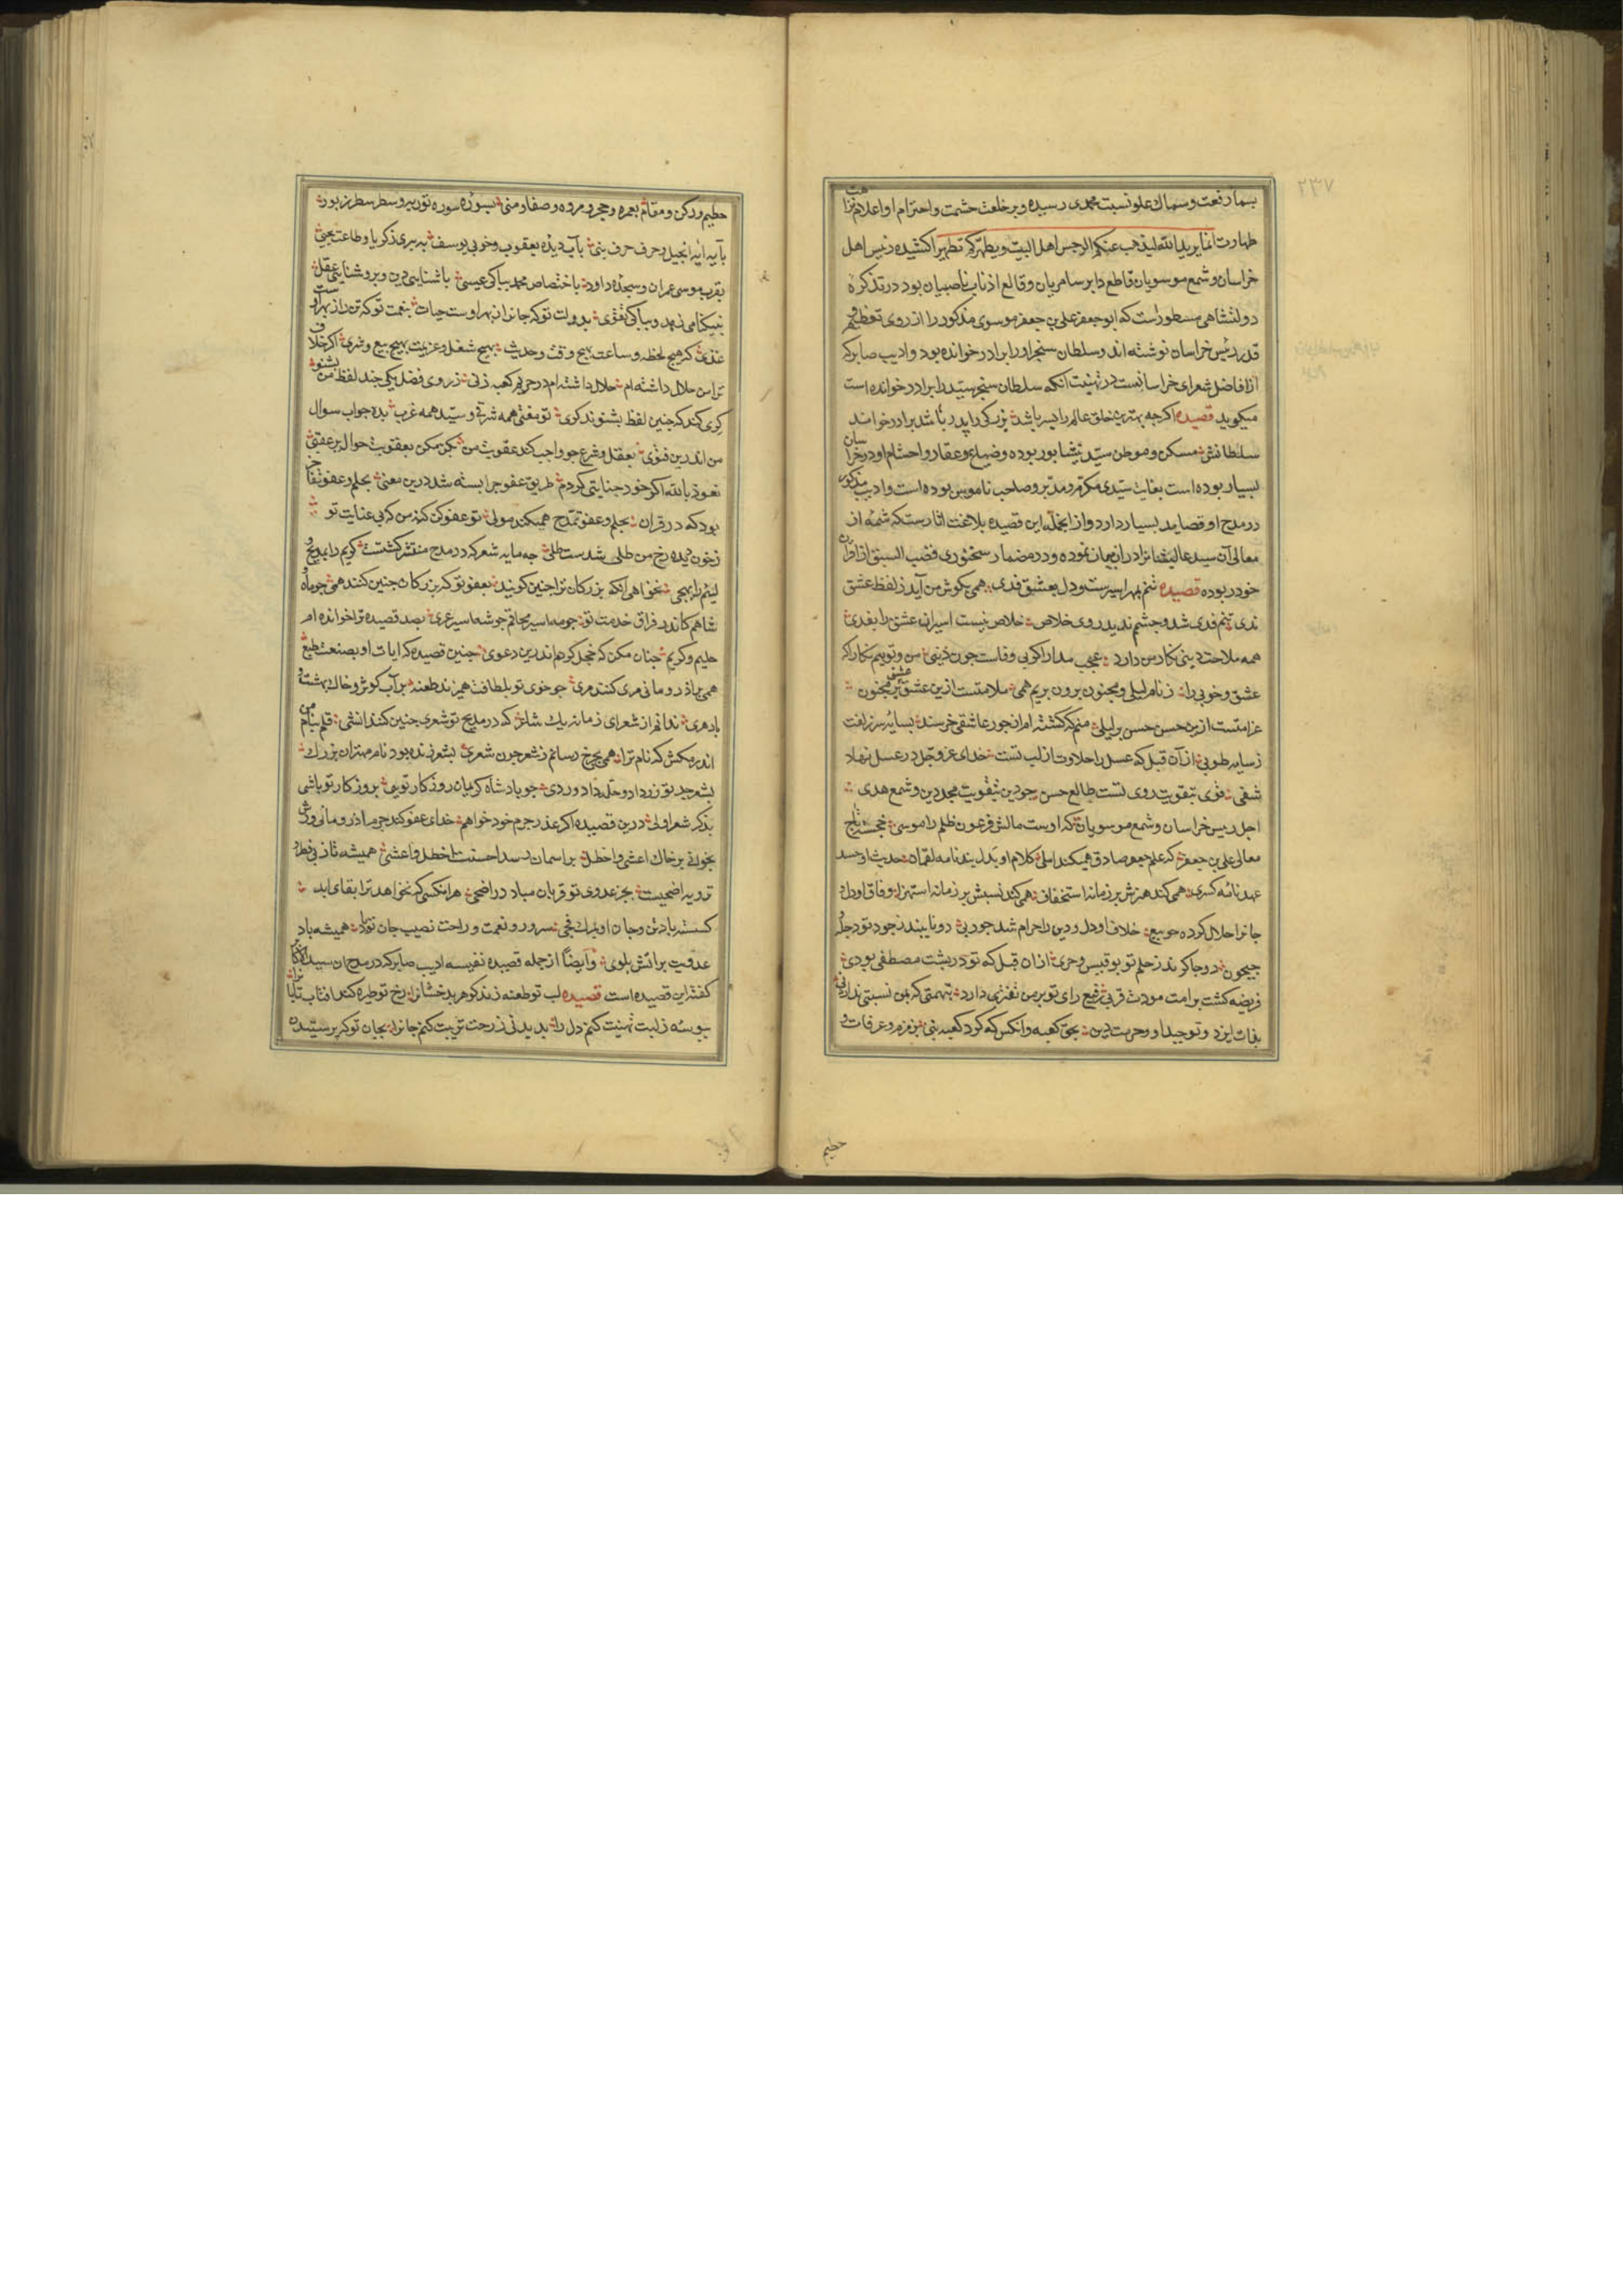 ۲۳۷
بسمار رفعت و سماك علو نسبت محمدی رسیده و بر خلعت حشمت و احترام او اعلام
طهارت انما یرید الله لیذهب عنکم الرجس اهل البیت و یطهرکم تطهیرا کشیده رئیس اهل
خراسان و شمع موسویان قاطع دابر سامریان و قالع اذناب ناصبیان بود در تذکرهٔ
دولتشاهی مسطور است که ابو جعفر علی بن جعفر موسوی مذکور را از روی تعظیم و
قدر رئیس خراسان نوشته اند و سلطان سنجر او را برادر خوانده بود و ادیب صابر که
از افاضل شعرای خراسانست در تهنیت انکه سلطان سنجر سید را برادر خوانده است
میکوید قصیده اکرچه بهترین خلق عالم را پسر باشد بزرکی را پدر باشد برادر خواند
سلطانش مسکن و موطن سید نیشابور بوده و ضیاع و عقار و احتشام او در خراسان
بسیار بوده است بغایت سیدی مکرم و مدبر و صاحب ناموس بوده است و ادیب مذکور
در مدح او قصاید بسیار دارد و از انجمله این قصیده بلاغت اثارست که شمهٔ از
معالی آن سید عالیشانرا در ان بیان نموده و در مضمار سخنوری قصب السبق از اقران
خود ربوده قصیده تنم بمهر اسیرست و دل بعشق فدی همی بکوش من آید ز لفظ عشق
ندی تنم فدی شد و چشمم ندید روی خلاص خلاص نیست اسیران عشق را بفدی
همه ملاحت دینی نکار من دارد عجب مدار اکر بی وفاست چون دینی من و توییم نکارا که
عشق و خوبی را ز نام لیلی و مجنون برون بریم همی ملامتست ازین عشق عشق بر مجنون
غرامتست ازین حسن حسن بر لیلی منم که کشته ام از جور عاشقی خرسند بسایه سر زلفت
ز سایه طوبی از آن قبل که عسل را حلاوت از لب تست خدای عز و جل در عسل نهاد
شفی قوی بتقویت روی تست طالع حسن چو دین بتقویت مجد دین و شمع هدی
اجل رئیس خراسان و شمع موسویان که اوست مالش فرعون ظلم را موسی خجسته تاج
معالی علی بن جعفر که علم جعفر صادق همیکند املی کلام او بدل پندنامه لقمان حدیث او حسد
عهدنامه کسری همی کند هنرش بر زمانه استخفاف همی کند نسبش بر زمانه استهزا وفاق او دل و
جانرا حلال کرده چو بیع خلاف او دل و دین را حرام شد چو ربی دو نایبند ز جود تو دجله و
جیحون دو چاکرند ز حلم تو بوقبیس و حری از ان قبل که تو در پشت مصطفی بودی
فریضه کشت بر امت مودت قربی رفیع رای تو بر من تغیری دارد بتهمتی که بمن نسبتی ندارد
بذات ایزد و توحید او و حرمت دین بحق کعبه و انکس که کرد کعبه بنی بزمزم و عرفات و
حطیم
حطیم و رکن و مقام بعمره و حجر و مروه و صفا و منی بسوره سوره توریه و سطر سطر زبور
بآیه آیه انجیل و حرف حرف نبی بآب دیده یعقوب و خوبی یوسف به پیری زکریا و طاعت یحیی
بقرب موسی عمران و سجده داود باختصاص محمد بپاکی عیسی باشنایی دین و بروشنایی عقل
بنیکنامی زهد و بپاکی تقوی بدولت تو که جانرا ز بهر اوست حیات بنعمت تو که تن را ز بهر اوست
غذی که هیچ لحظه و ساعت بهیچ وقت و حدیث بهیچ شغل و عزیمت بهیچ بیع و شری اکر خلاف
ترا من حلال داشته ام حلال داشته ام در حرم کعبه زنی ز روی فضل یکی چند لفظ من بشنو
کری کند که چنین لفظ بشنوند کری تو مفتی همه شرقی و سید همه غرب بده جواب سوال
من اندرین فتوی بعقل و شرع چو واجب کند عقوبت من مکن مکن بعقوبت حوال بر عقبی
نعوذ بالله اکر خود جنایتی کردم طریق عفو چرا بسته شد درین معنی بحلم و عفو تفاخر
بود که در قران بحلم و عفو تمدح همیکند مولی تو عفو کن کنه من که بی عنایت تو
ز خون دیده رخ من طلی شدست طلی چه مایه شعر که در مدح منتشر کشتست کریم را بمدیح و
لئیم را بهجی نخواهی آنکه بزرکان ترا چنین کویند بعفو تو که بزرکان چنین کنند همی چو ماه
شاهم کاندر فراق خدمت تو چو مه اسیر محاقم چو شه اسیر عری بصد قصیده ترا خوانده ام
حلیم و کریم چنان مکن که خجل کردم اندرین دعوی چنین قصیده که ابیات او بصنعت طبع
همی بر اذر و مانی مری کنند مری چو خوی تو بلطافت همی زند طعنه بر آب کوثر و خاك بهشت و
باد هری ندانم از شعرای زمانه یك شاعر که در مدیح تو شعری چنین کند انشی قلم بنام من
اندر مکش که نام ترا همی بچرخ رسانم ز شعر چون شعری بشعر زنده بود نام مهتران بزرك
بشعر جد تو زر داد و حله داد و ردی چو پادشاه کریمان روزکار تویی بروزکار تو باشی
بذکر شعر اولی درین قصیده اکر عذر جرم خود خواهم خدای عفو کند جرم اذر و مانی ورش
بخوانی بر خاك اعشی و اخطل بر اسمان رسد احسنت اخطل و اعشی همیشه تا ز پی فطر و
ترویه اضحیست بجز عدوی تو قربان مباد در اضحی هر انکسی که نخواهد ترا بقای ابد
کسسته باد تن و جان او بمرك فجی سرور و نعمت و راحت نصیب جان تو باد همیشه باد
عدوت بر اتش بلوی و ایضاً از جمله قصیده نفیسه ادیب صابر که در مدح ان سید
کفته این قصیده است قصیده لب تو طعنه زند کوهر بدخشانرا رخ تو طیره کند افتاب تابانرا
ببوسه ز لبت تهنیت کنم دل را بدیدنی ز رخت تربیت کنم جانرا بجان توکه پرستیده